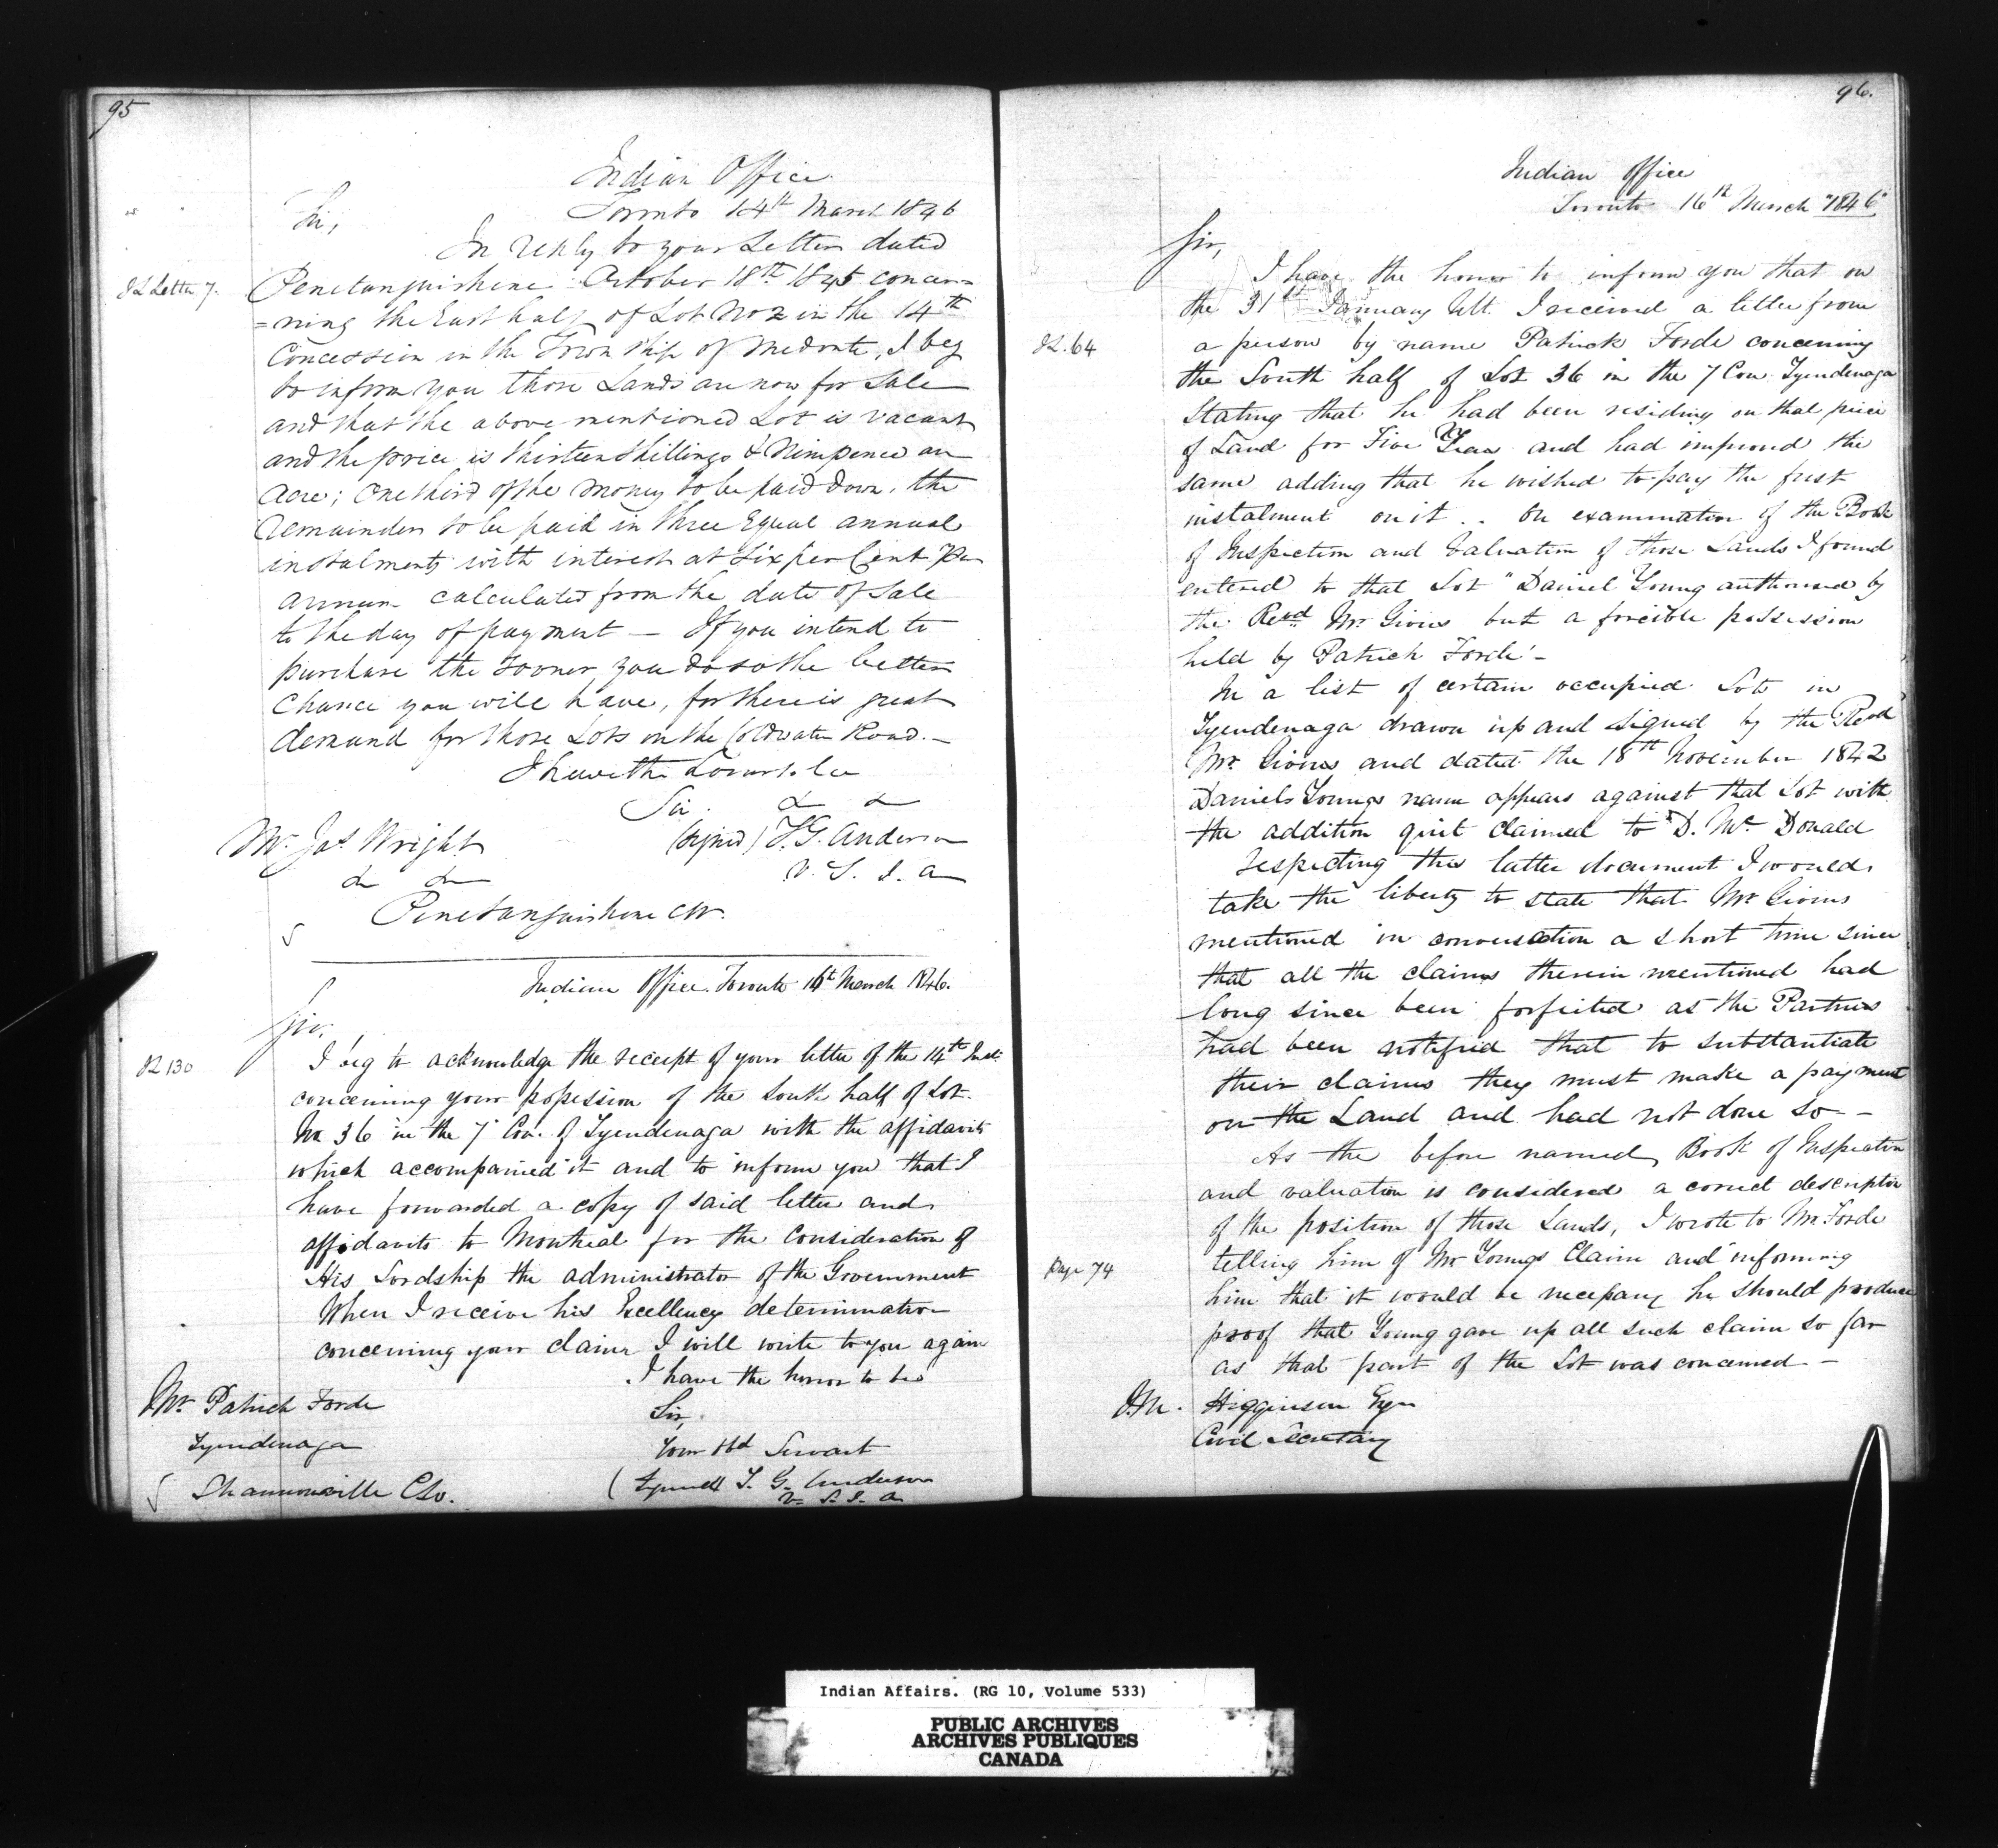 95
Indian Office
Toronto 14th March 1846
Sir,
In reply to your Letter dated
I L Letter 7.
Penetanguishene October 18th 1845 concer=
=ning the East half of Lot No 2 in the 14th
Concession in the Township of Medonte, I beg
to inform you those Lands are now for Sale
and that the above mentioned Lot is vacant
and the price is thirteen shillings & Ninepence an
Acre; One third of the money to be paid down, the
remainder to be paid in three Equal annual
instalments with interest at six per Cent Per
Annum calculated from the date of Sale
to the day of payment — If you intend to
purchase the sooner you do so the better
Chance you will have, for there is great
demand for those Lots on the Coldwater Road.—
I have the honor to be
Sir. &c &c
Mr. Jas. Wright
(signed) T. G. Anderson
&c &c
V. S. I. A
Penetanguishene CW.
Indian Office Toronto 16th March 1846.
Sir,
I L 130
I beg to acknowledge the receipt of your letter of the 14th Inst.
concerning your possession of the South half of Lot
No 36 in the 7 Con. of Tyendenaga with the affidavits
which accompanied it and to inform you that I
have forwarded a copy of said letter and
affidavits to Montreal for the consideration of
His Lordship the administrator of the Government
When I receive his Excellency determination
concerning your claim I will write to you again
I have the honor to be
Mr. Patrick Forde
Sir,
Tyendenaga
Your Obd Servant
Shannonville C.W.
(Signed) T. G. Anderson
V. S. I. A
96.
Indian Office
Toronto 16th March 1846
Sir,
I have the honor to inform you that on
the 31st January Ult. I received a letter from
I L. 64
a person by name Patrick Forde concerning
the South half of Lot 36 in the 7 Con Tyendenaga
Stating that he had been residing on that piece
of Land for Five Years and had improved the
same adding that he wished to pay the first
instalment on it .. On examination of the Book
of Inspection and Valuation of those Lands I found
entered to that Lot "Daniel Young authorised by
the Revd. Mr Givins but a forcible possession
held by Patrick Forde" –
In a list of certain occupied Lots in
Tyendenaga drawn up and signed by the Revd
Mr. Givins and dated the 18th November 1842
Daniels Youngs name appears against that Lot with
the addition quit claimed to "D. Mc Donald
respecting this latter document I would
take the liberty to state that Mr Givins
mentioned in conversation a short time since
that all the claims therein mentioned had
long since been forfeited as the Parties
had been notified that to substantiate
their claims they must make a payment
on the Land and had not done so –
As the before named Book of Inspection
and valuation is considered a correct description
of the position of those Lands, I wrote to Mr. Forde
Page 74
telling him of Mr Youngs Claim and informing
him that it would be necessary he should produce
proof that Young gave up all such claim so far
as that part of the Lot was concerned –
J. M. Higginson Esqr
Civil Secretary
Indian Affairs. (RG 10, Volume 533)
PUBLIC ARCHIVES
ARCHIVES PUBLIQUES
CANADA